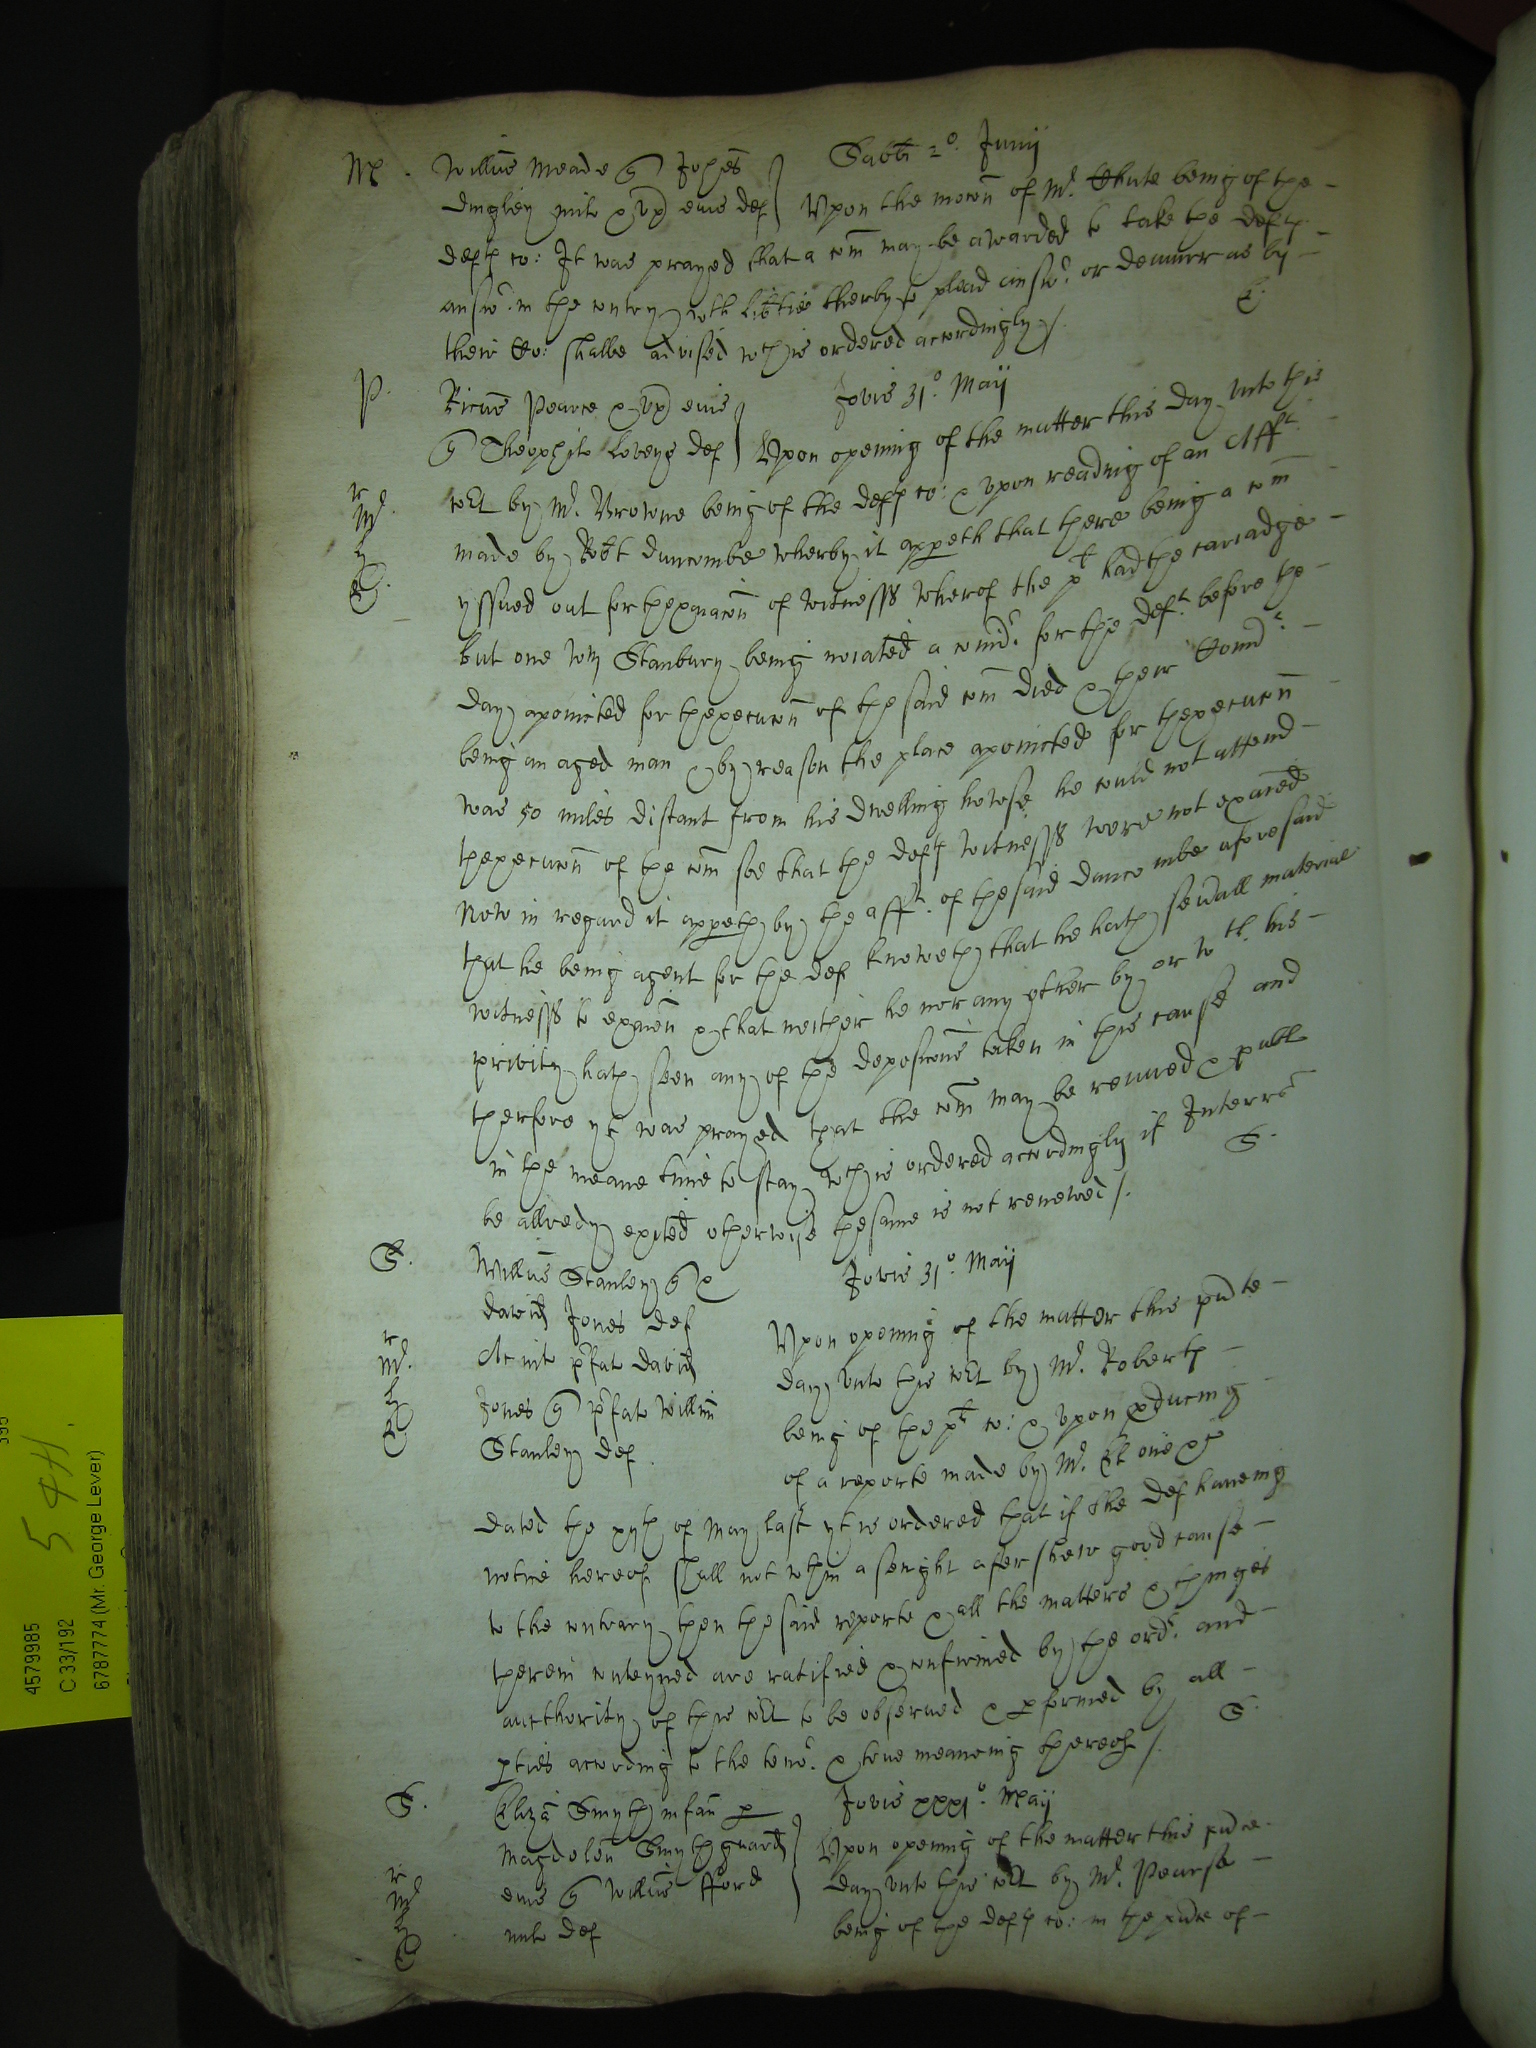 M. Willms Meade q Johes Sabti 2o. Junij
dingley milite & ux eius def Upon the mocon of Mr. Chute being of the
deftes co: It was prayed that a com may be awarded to take the deftes
answr. in the contry wth libtie therby to plead answr. or demurr as by
their Co: shalbe advised wch is ordered accordingly /. E.
P. Ricus Pearce & ux eius Jovis 31o. Maij
q Theophilo def Upon opening of the matter this day unto this
r Mr. h E. cort by Mr. Browne being of the deftes co: & upon reading of an Afft.
made by Robt duncombe wherby it appeth that there being a com
yssued out for thexaiacon of witnesses wherof the plt had the cariadge
but one Wm Stanbury being noiated a comr. for the deft. before the
day apointed for thexecucon of the said com died & their Comr.
being an aged man & by reason the place apointed for thexecucon
was 50 miles distant from his dwelling howse he could not attend
thexecucon of the com soe that the deftes witnesses were not exaied
Now in regard it appeth by the afft. of the said duncombe aforesaid
that he being agent for the def knoweth that he hath sevall material
witnesses to exaien & that neither he nor any other by or wth. his
privity hath seen any of the deposicons taken in this cause and
therfore yt was prayed that the com may be renued & publ
in the meane time to stay wch is ordered accordingly if Interrs
be allredy exited otherwise the same is not renewed /. S.
S. Willms Stanley q & Jovis 31o. Maij
david Jones def Upon opening of the matter this pnte
r Mr. h E Ac inter pfat david day unto this cort by Mr. Robertes
Jones q pfat Willm being of the plt co: & upon pducing
Stanley def. of a reporte made by Mr.
dated the xyth of May last yt is ordered that if the def haveing
notice hereof shall not wthin a senight after shew good cause
to the contrary then the said reporte & all the matters & thinges
therein conteyned are ratified & confirmed by the ordr. and
aucthority of this cort to be observed & pformed by all
pties according to the tenor. & true meaneing thereof /. S.
S. Eliza Smyth infan p Jovis xxxio. Maij
Magdolen Smyth guard Upon opening of the matter this pnte
r Mr h E eius q Willm fford day unto this cort by Mr. Pearse
milite def being of the deftes co: in the pnce of
4579985
C 33/192
6787774 (Mr. George Lever)